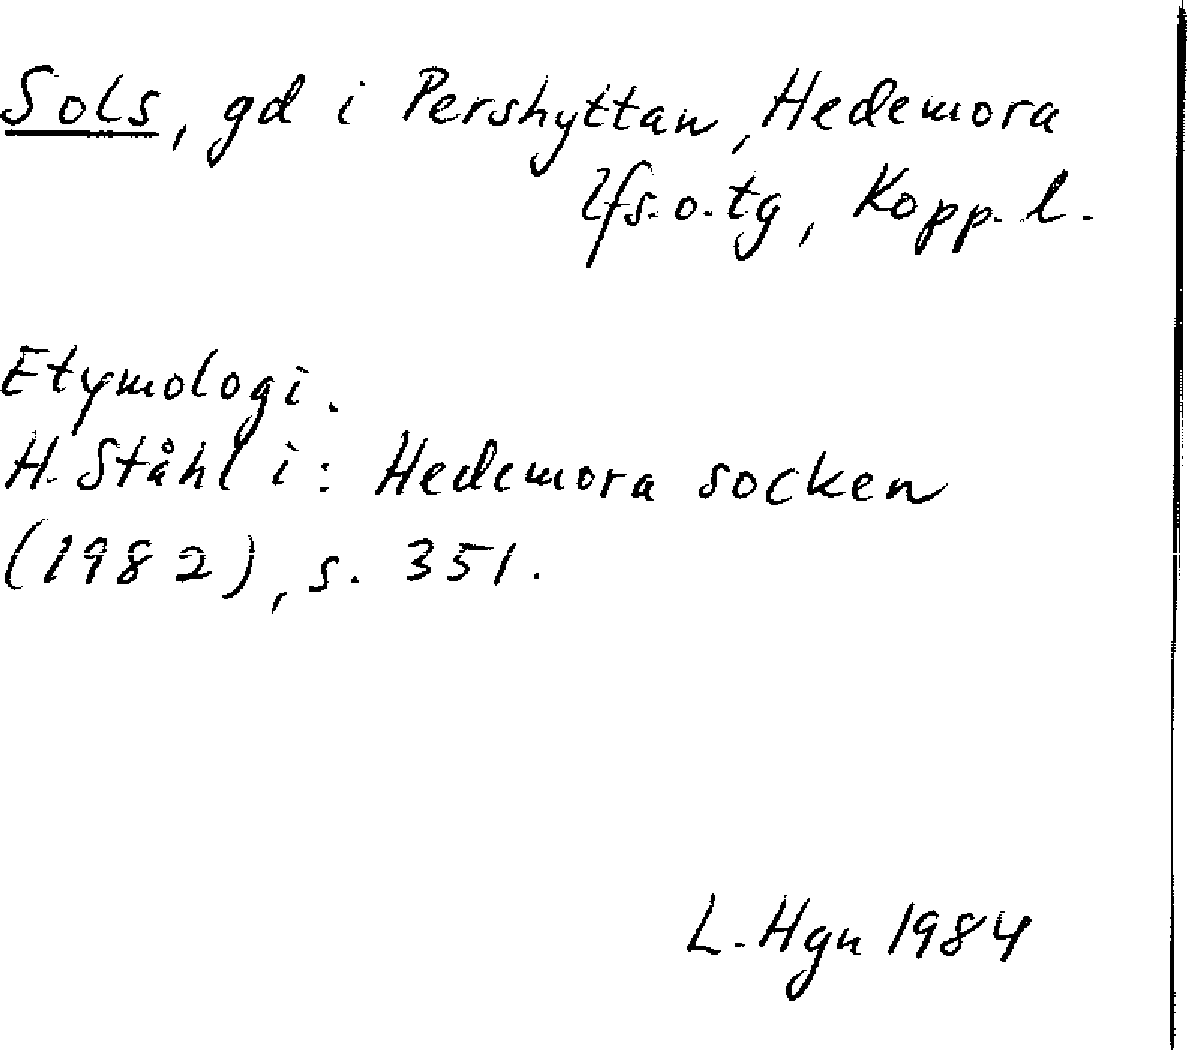 Sols, gd i Pershyttan, Hedemora
lfs. o. tg, Kopp. l.
Etymologi.
H. Ståhl i: Hedemora socken
(1982), s. 351.
L. Hgn 1984